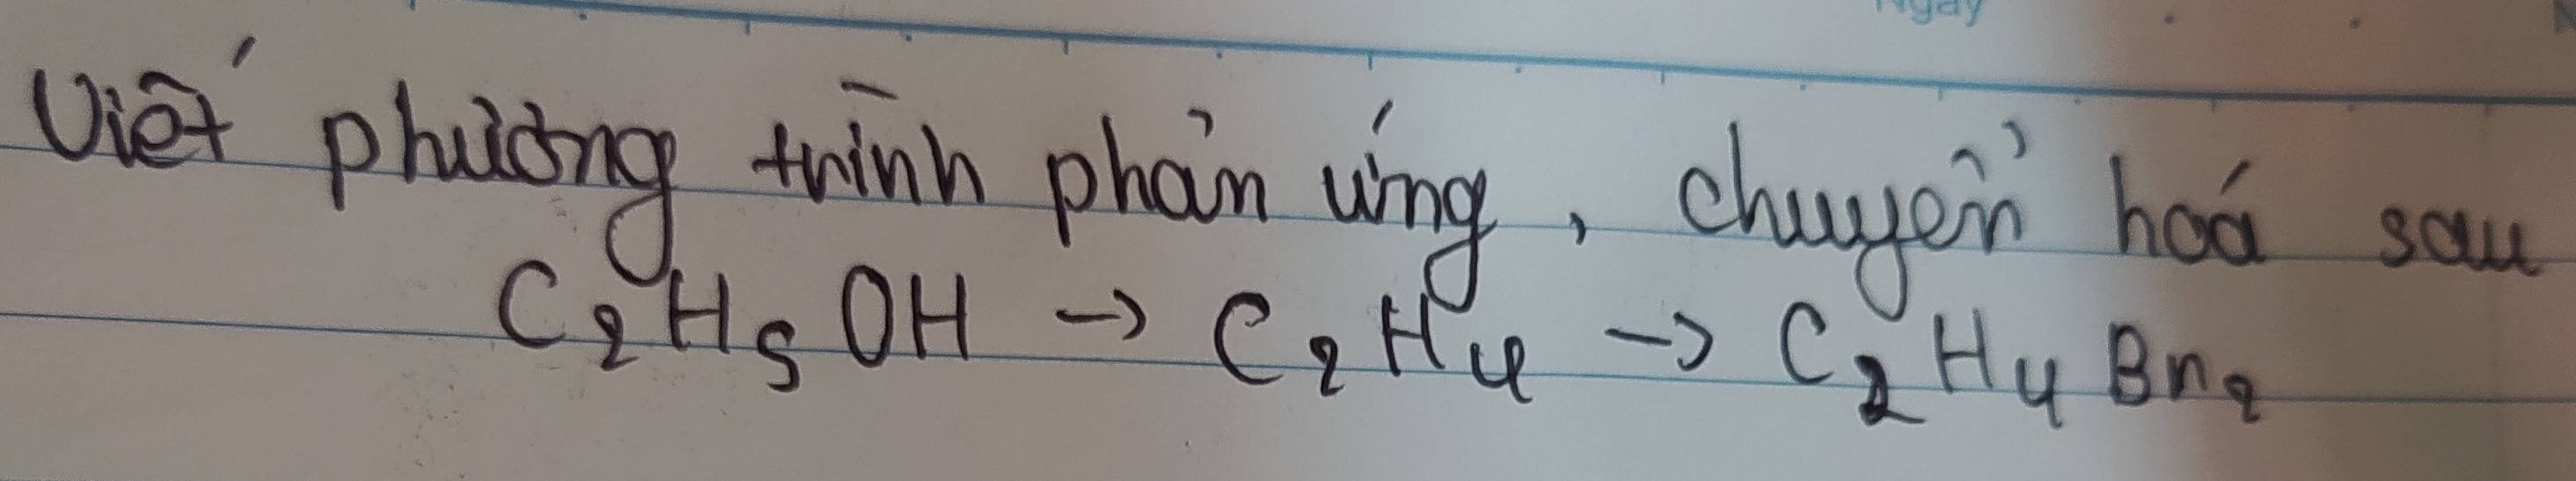 Ngày
Viết phương trình phản ứng, chuyển hoá sau
C2H5OH → C2H4 → C2H4Br2